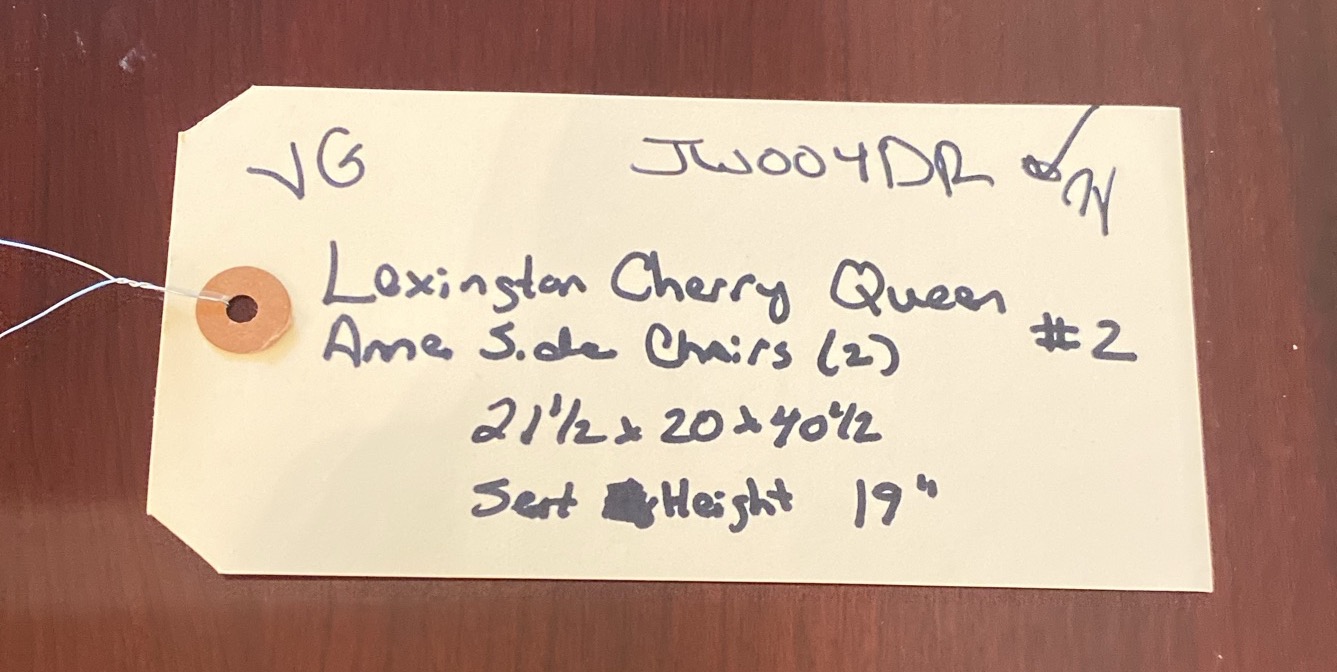 VG JW004DR
Lexington Cherry Queen
Anne Side Chairs (2) #2
21 1/2 x 20 x 40 1/2
Seat Height 19"